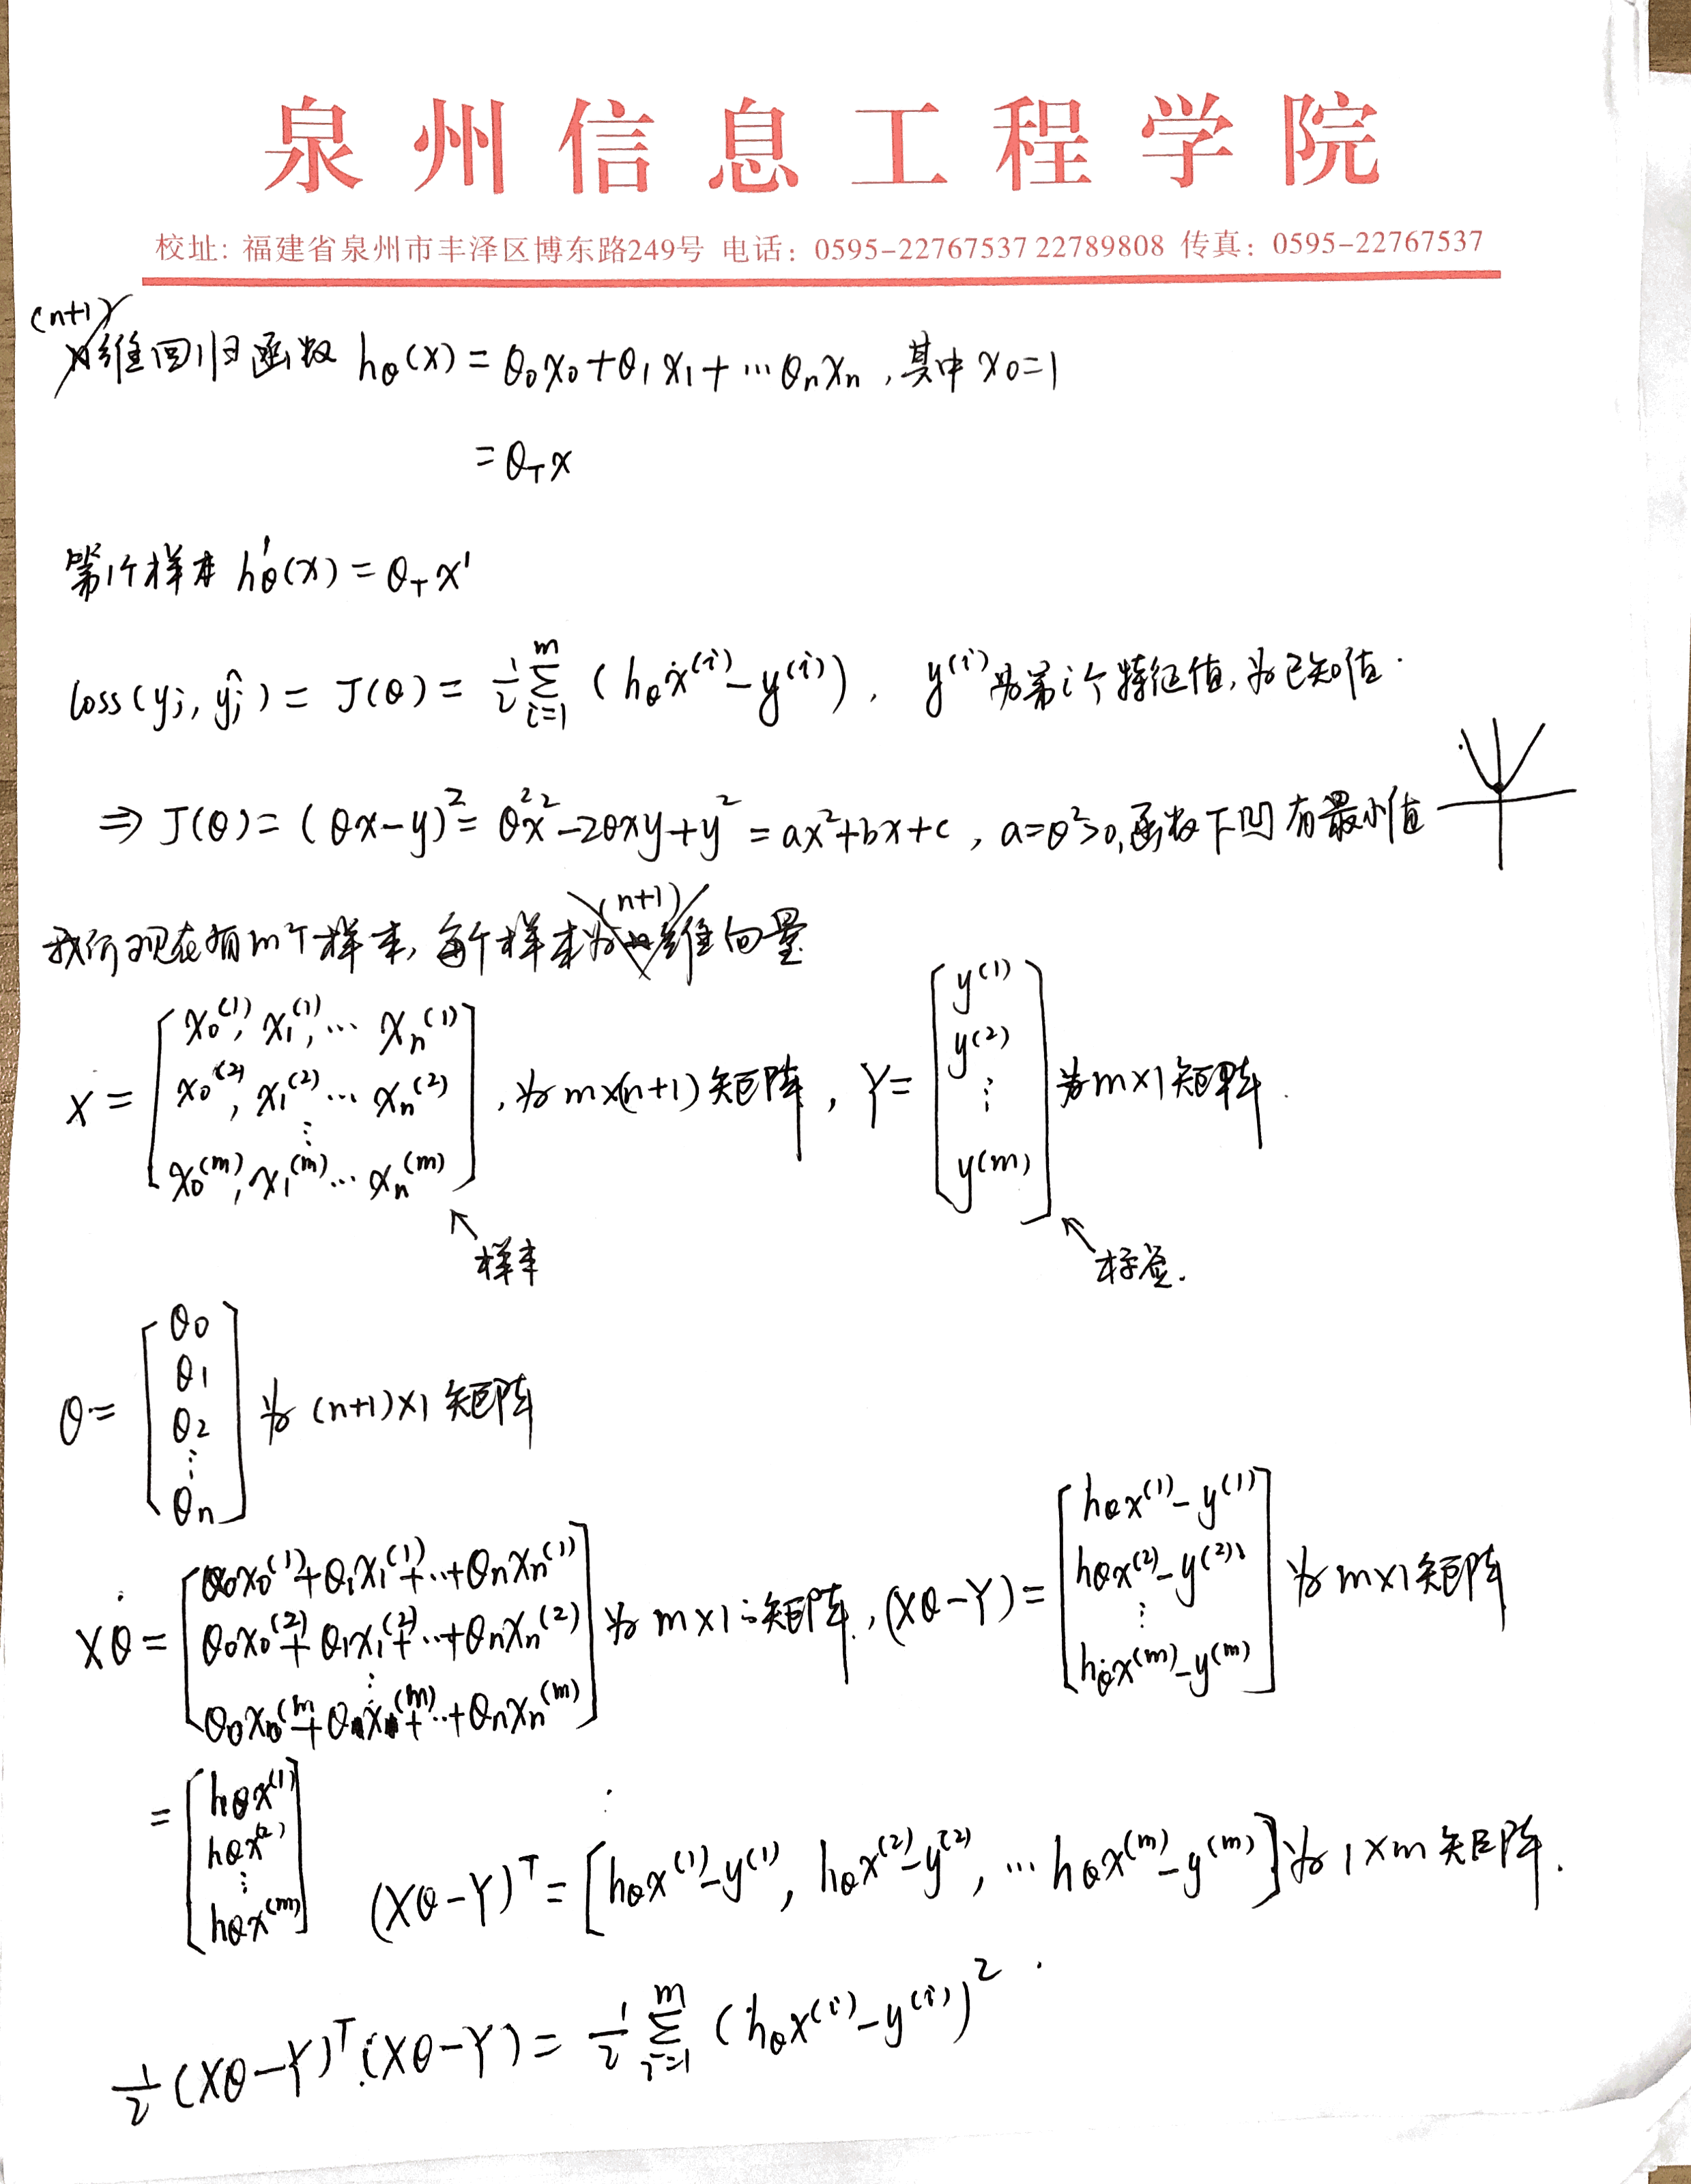 泉州信息工程学院
校址: 福建省泉州市丰泽区博东路249号 电话: 0595-22767537 22789808 传真: 0595-22767537
(n+1)
维回归函数 hθ(x) = θ0x0 + θ1x1 + … θnxn , 其中 x0=1
= θTx
第1个样本 h'θ(x) = θTx'
loss(yj, ŷj) = J(θ) = 1/2 Σ_{i=1}^{m} (hθx^(i) - y^(i)), y^(i)为第i个特征值, 为已知值.
⇒ J(θ) = (θx-y)² = θ²x² - 2θxy + y² = ax²+bx+c , a=θ²>0, 函数下凹 有最小值
(n+1)
我们现在有m个样本, 每个样本为 维向量
X = [x0^(1), x1^(1), … xn^(1)
x0^(2), x1^(2) … xn^(2)
⋮
x0^(m), x1^(m) … xn^(m)] , 为 m×(n+1) 矩阵 ,
Y = [y^(1)
y^(2)
⋮
y^(m)] 为 m×1 矩阵.
↖样本
↖标签.
θ = [θ0
θ1
θ2
⋮
θn] 为 (n+1)×1 矩阵
Xθ = [θ0x0^(1)+θ1x1^(1)+…+θnxn^(1)
θ0x0^(2)+θ1x1^(2)+…+θnxn^(2)
⋮
θ0x0^(m+θ1x1^(m)+…+θnxn^(m)] 为 m×1 矩阵,
(Xθ-Y) = [hθx^(1)-y^(1)
hθx^(2)-y^(2)
⋮
hθx^(m)-y^(m)] 为 m×1 矩阵
= [hθx^(1)
hθx^(2)
⋮
hθx^(m)]
(Xθ-Y)^T = [hθx^(1)-y^(1), hθx^(2)-y^(2), … hθx^(m)-y^(m)] 为 1×m 矩阵.
1/2 (Xθ-Y)^T.(Xθ-Y) = 1/2 Σ_{i=1}^{m} (hθx^(i)-y^(i))²